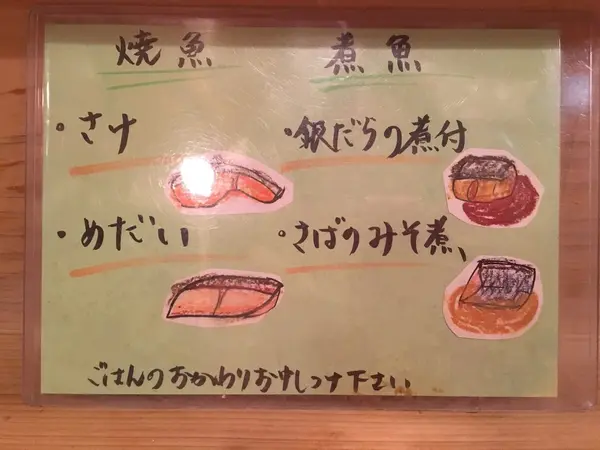 焼魚
煮魚
・さけ
・銀だらの煮付
・めだい
・さばのみそ煮
ごはんのおかわりお申しつけ下さい